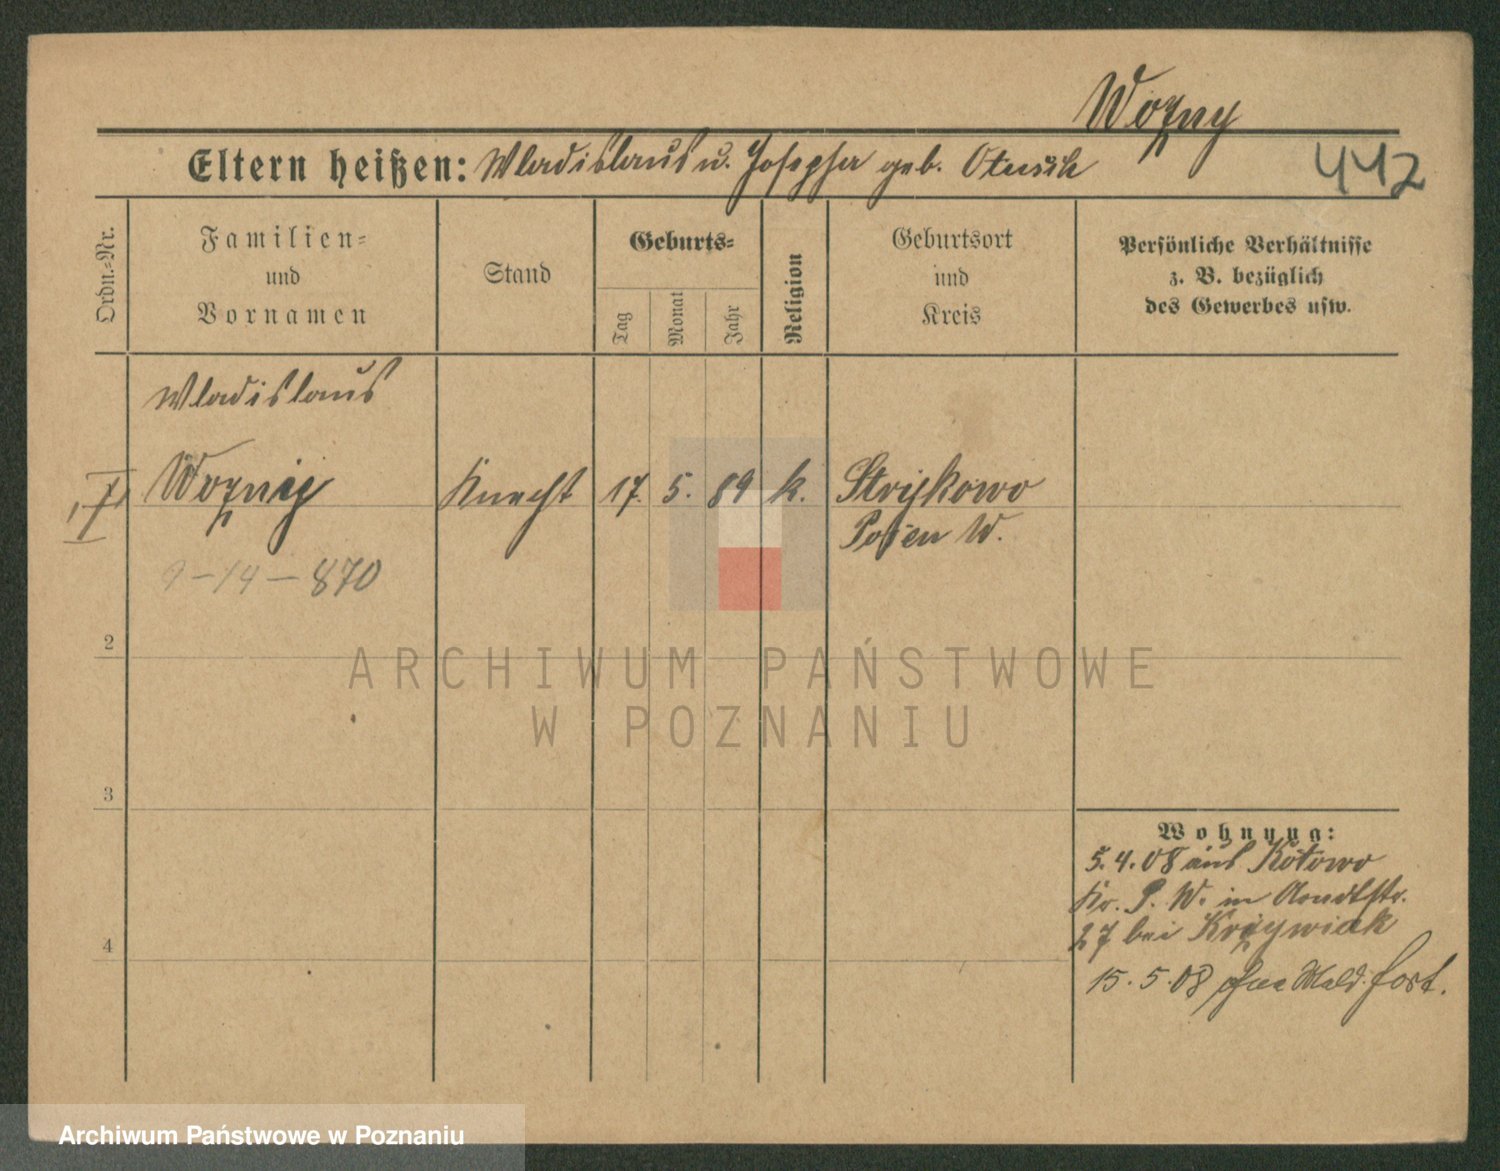 Wozny
Eltern heißen: Wladislaus u. Josepha geb.
442
Ordn.-Nr.
Familien-
und
Vornamen
Stand
Geburts-
Tag
Monat
Jahr
Religion
Geburtsort
und
Kreis
Persönliche Verhältnisse
z. B. bezüglich
des Gewerbes usw.
Wladislaus
Wozny Knecht 17. 5. 89 k. Strykowo
Posen W.
9-14-870
2
3
4
Wohnung:
5.4.08 aus Kotowo
Kr. P. W. in Arndtstr.
27 bei Krzywiak
15.5.08 ohne Meld. fort.
ARCHIWUM PAŃSTWOWE
W POZNANIU
Archiwum Państwowe w Poznaniu